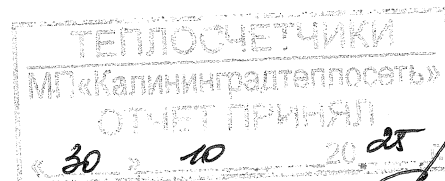 ТЕПЛОСЧЕТЧИКИ
МП «Калининградтеплосеть»
ОТЧЕТ ПРИНЯЛ
« 30 » 10 20 25